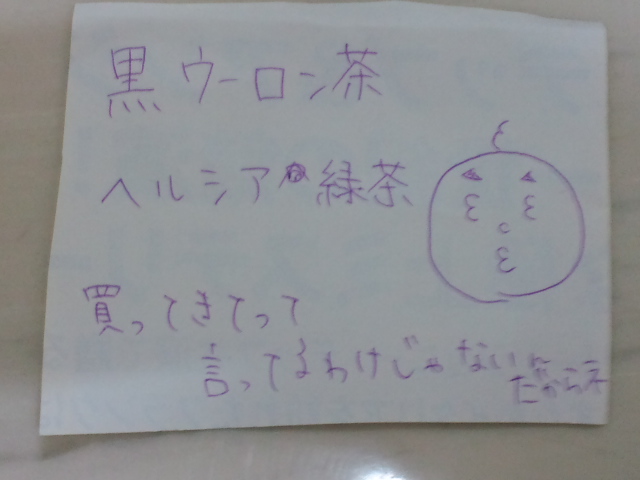 黒ウーロン茶
ヘルシア緑茶
買ってきてって
言ってるわけじゃないん
だからネ